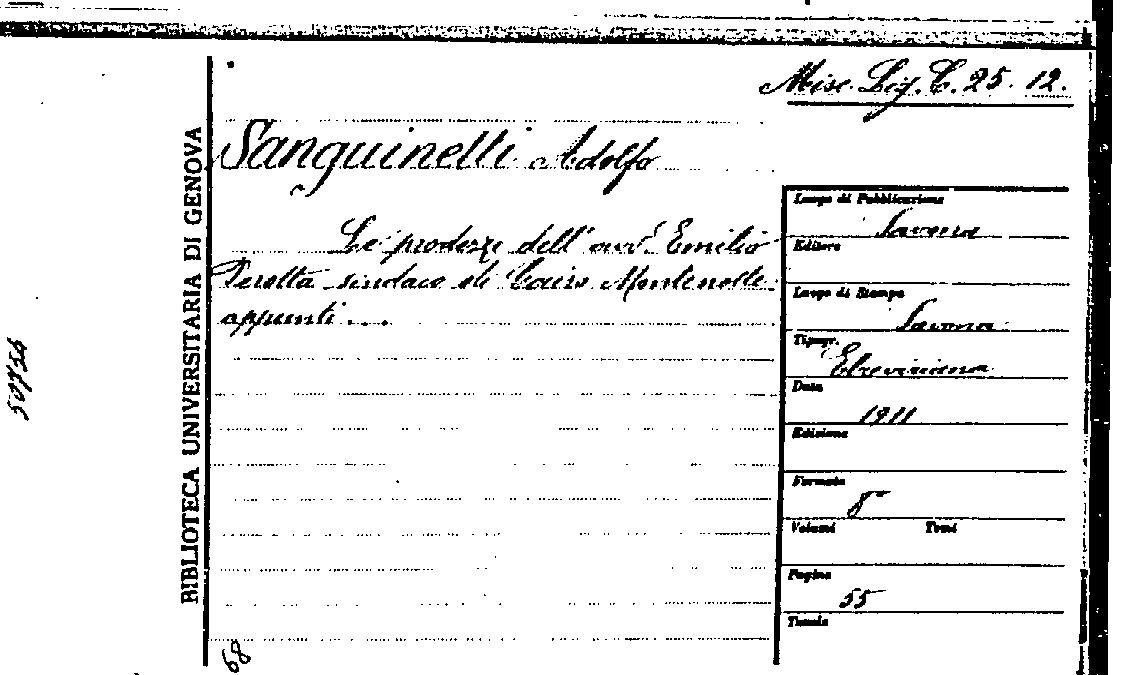 Misc. Lig. C. 25. 12.
Sanguinetti Adolfo
Le prodezze dell' avv. Emilio
sindaco di Cairo Montenotte
appunti...
BIBLIOTECA UNIVERSITARIA DI GENOVA
Luogo di Pubblicazione
Savona
Editore
Luogo di Stampa
Savona
Tipogr.
Elzeviriana
Data
1911
Edizione
Formato
8°
Volumi Tomi
Pagine
55
Tavole
50756
68